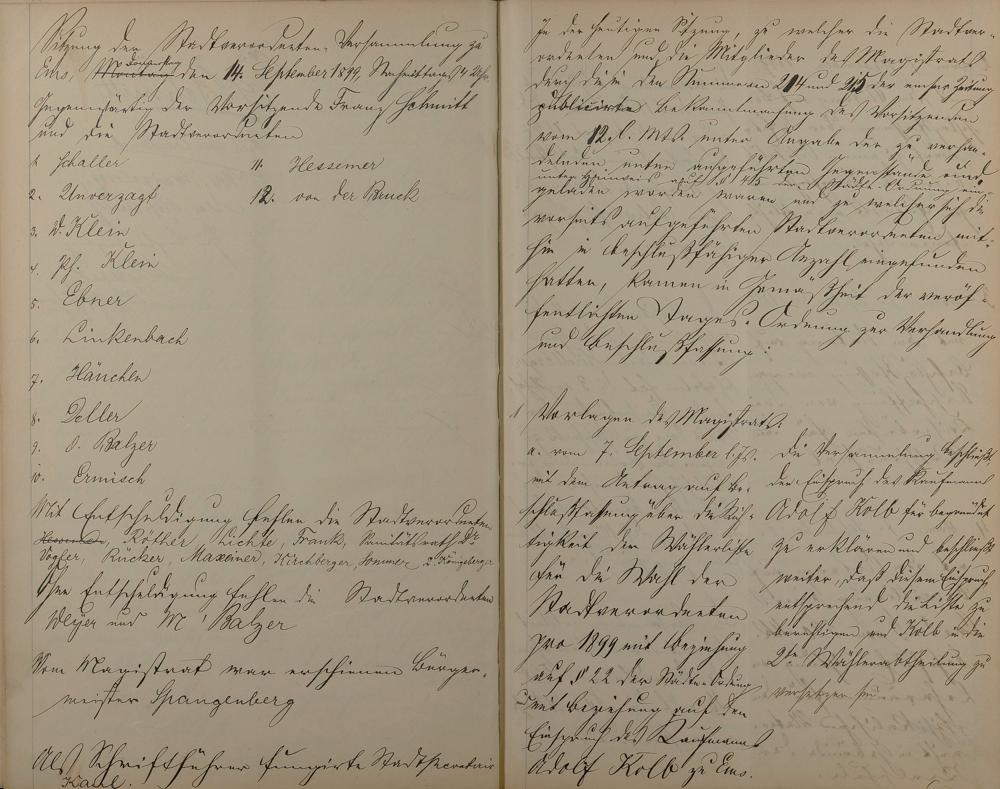 Sitzung der Stadtverordneten-Versammlung zu
Donnerstag
Ems, Montag den 14. September 1899, Nachmittags 4 Uhr
Gegenwärtig der Vorsitzende Franz Schmitt
und die Stadtverordneten
1. Schaller
2. Unverzagt
3. W. Klein
4. Ph. Klein
5. Ebner
6. Linkenbach
7. Hänchen
8. Deller
9. O. Balzer
10. Ermisch
11. Hessemer
12. von der Bruck
Mit Entschuldigung fehlen die Stadtverordneten
Hessemer, Röther, Lichte, Frank, Sanitätsrath Dr.
Vogler, Rücker, Maxeiner, Kirchberger, Sommer, Königsberger
Ohne Entschuldigung fehlen die Stadtverordneten
Weyer und M. Balzer
Vom Magistrat war erschienen Bürger-
meister Spangenberg
Als Schriftführer fungirte Stadtsecretair
Kaul.
In der heutigen Sitzung, zu welcher die Stadtver-
ordneten und die Mitglieder des Magistrats
durch die in den Nummern 214 und 215 der Emser Zeitung
publicirte Bekanntmachung des Vorsitzenden
vom 12. l. Mts. unter Angabe der zu verhan-
delnden unten aufgeführten Gegenstände und
unter Hinweis auf § 45 der Städte-Ordnung ein-
geladen worden waren und zu welcher sich die
vorseits aufgeführten Stadtverordneten mit-
hin in beschlußfähiger Anzahl eingefunden
hatten, kamen in Gemäßheit der veröf-
fentlichten Tages-Ordnung zur Verhandlung
und Beschlußfassung:
1 Vorlagen des Magistrats.
a. vom 7. September l. Js.
mit dem Antrag auf Be-
schlußfassung über die Rich-
tigkeit der Wählerliste
für die Wahl der
Stadtverordneten
pro 1899 mit Beziehung
auf § 22 der Städte-Ordnung
mit Beziehung auf den
Einspruch des Kaufmanns
Adolf Kolb zu Ems.
Die Versammlung beschließt,
den Einspruch des Kaufmanns
Adolf Kolb für begründet
zu erklären und beschließt
weiter, daß diesem Einspruch
entsprechend die Liste zu
berichtigen und Kolb in die
2te Wählerabtheilung zu
versetzen sei.